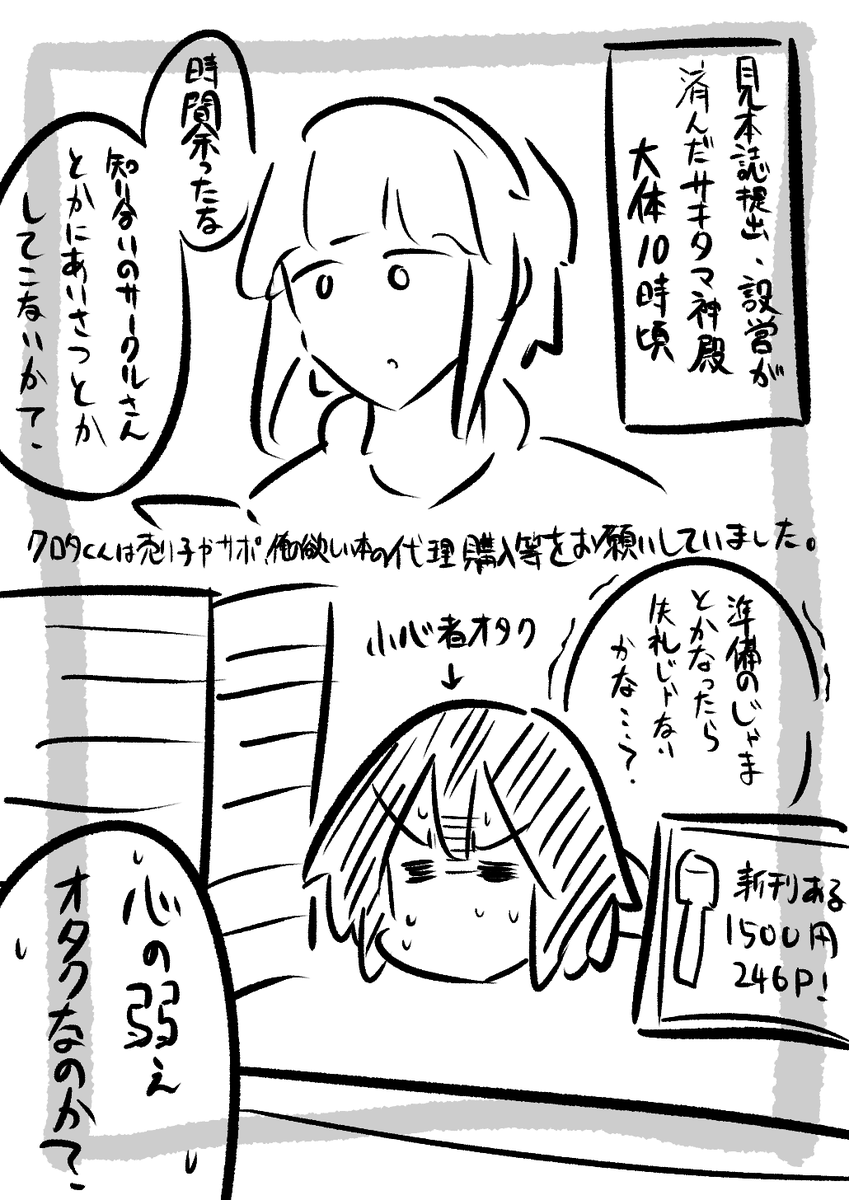 見本誌提出、設営が
済んだサキタマ神殿
大体10時頃
時間余ったな
知り合いのサークルさん
とかにあいさつとか
してこないかて、
クロタくんは売り子やサポ、俺の欲しい本の代理購入等をお願いしていました。
準備のじゃま
とかなったら
失礼じゃない
かな…?
小心者オタク
↓
新刊ある
1500円
246P!
心の弱え
オタクなのかて、